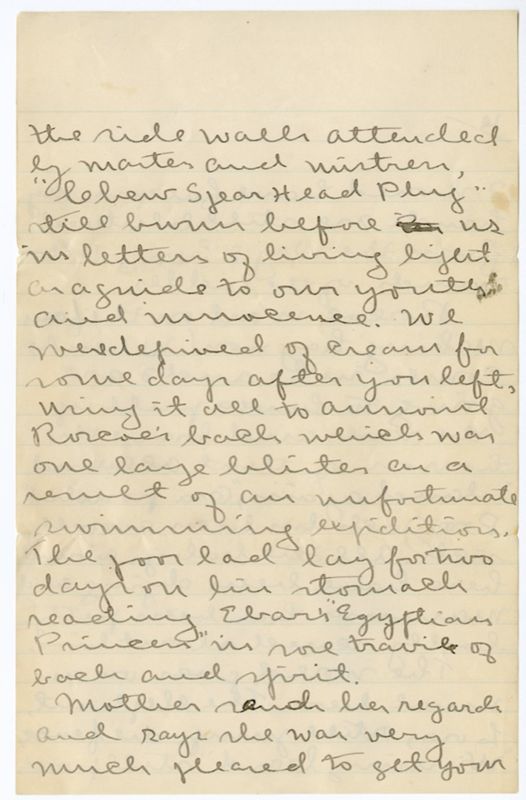 the side walls attended
by master and mistress,
"Chew Spear Head Plug"
still burns before us
in letters of living light
as a guide to our youth
and innocence. We
were deprived of cream for
some days after you left,
using it all to annoint
Roscoe's back which was
one large blister as a
result of an unfortunate
swimming expidition.
The poor lad lay for two
days on his stomach
reading Ebars' "Egyptian
Princess" in sore travile of
back and spirit.
Mother sends her regards
and says she was very
much pleased to get your